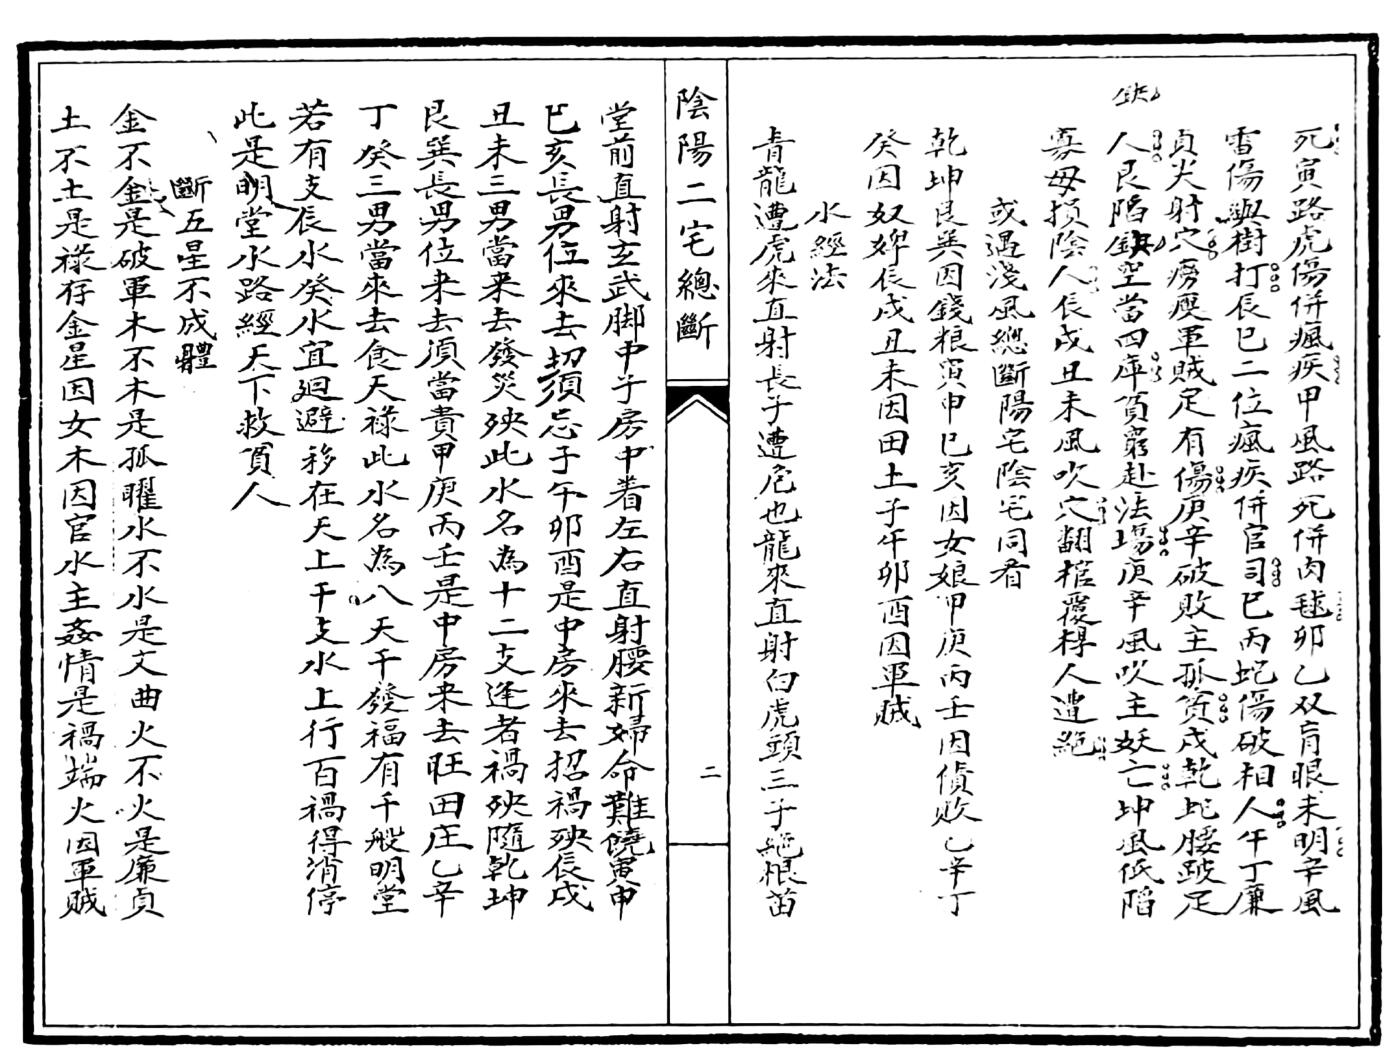 缺
死寅路虎傷併瘋疾甲風路死併肉毬卯乙双盲眼未明辛風
雷傷與樹打辰巳二位瘋疾併官司巳丙蛇傷破相人午丁廉
貞火射穴癆瘦軍賊足有傷庚辛破敗主孤貧戌乾比腰跛足
人艮陷缺空當四庫貧窮赴法場庚辛風吹主妖亡坤風低陷
寡母損陰人辰戌丑未風吹穴翻棺覆槨人遭絕
或遇淺風總斷陽宅陰宅同看
乾坤艮巽因錢粮寅申巳亥因女娘甲庚丙壬因債敗乙辛丁
癸因奴婢辰戌丑未因田土子午卯酉因軍賊
水經法
青龍遭虎來直射長子遭危也龍來直射白虎頭三子絕根苗
陰陽二宅總斷
二
堂前直射玄武脚中子房中看左右直射腰新婦命難饒寅申
巳亥長男位來去切須忌子午卯酉是中房來去招禍殃辰戌
丑未三男當来去發災殃此水名為十二支逢者禍殃隨乾坤
艮巽長男位来去須當貴甲庚丙壬是中房来去旺田庄乙辛
丁癸三男當來去食天祿此水名為八天干發福有千般明堂
若有支辰水癸水宜迴避移在天上干支水上行百禍得消停
此是明堂水路經天下救貧人
斷五星不成體
金不金是破軍木不木是孤曜水不水是文曲火不火是廉貞
土不土是祿存金星因女木因官水主姦情是禍端火因軍賊